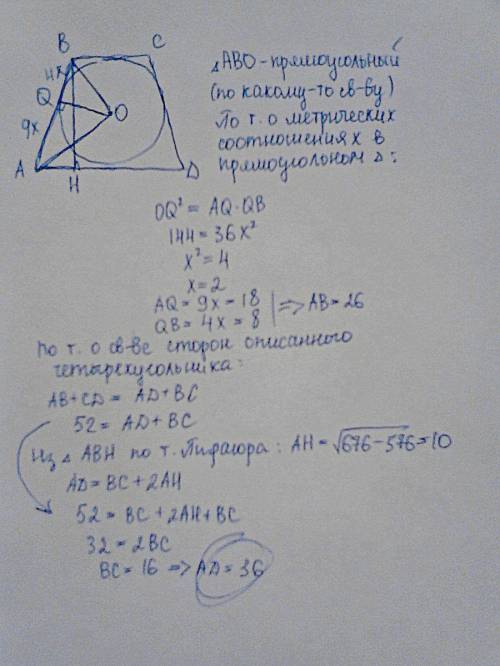 B C
4x
Q
O
9x
A H D
△ABO - прямоугольный
(по какому-то св-ву)
По т. о метрических
соотношениях в
прямоугольном △:
OQ² = AQ·QB
144 = 36x²
x² = 4
x = 2
AQ = 9x = 18
QB = 4x = 8 => AB = 26
По т. о св-ве сторон описанного
четырехугольника:
AB + CD = AD + BC
52 = AD + BC
Из △ ABH по т. Пифагора: AH = √676-576 = 10
AD = BC + 2AH
52 = BC + 2AH + BC
32 = 2BC
BC = 16 => AD = 36